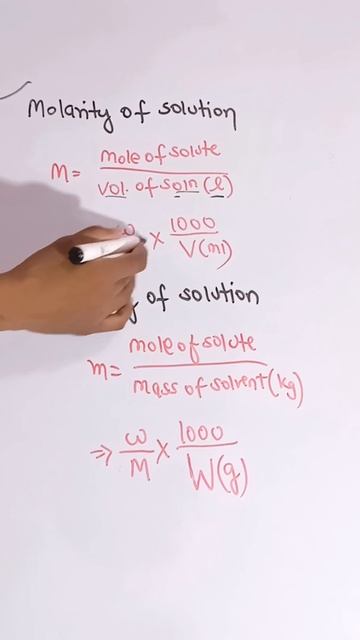 Molarity of solution
M = mole of solute / vol. of soln (l)
ω × 1000 / V(ml)
of solution
m = mole of solute / mass of solvent (kg)
⇒ ω/M × 1000 / W(g)